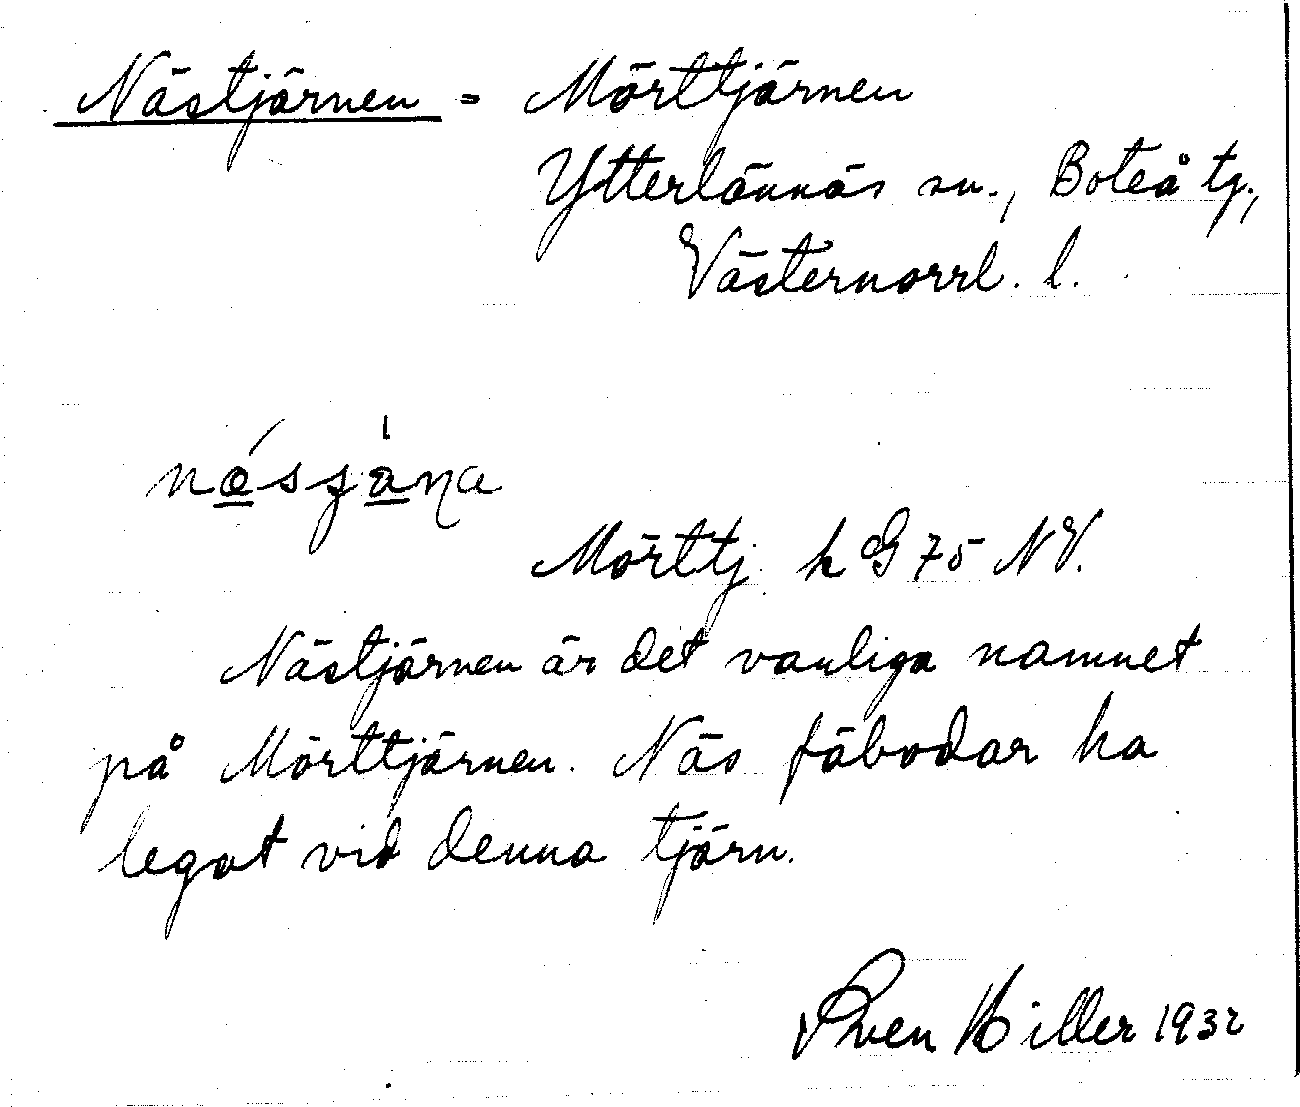 Nästjärnen = Mörttjärnen
Ytterlännäs sn., Boteå tg.,
Västernorrl. l.
Mörttj. k G 75 NV.
Nästjärnen är det vanliga namnet
på Mörttjärnen. Näs fäbodar ha
legat vid denna tjärn.
Sven Hiller 1932